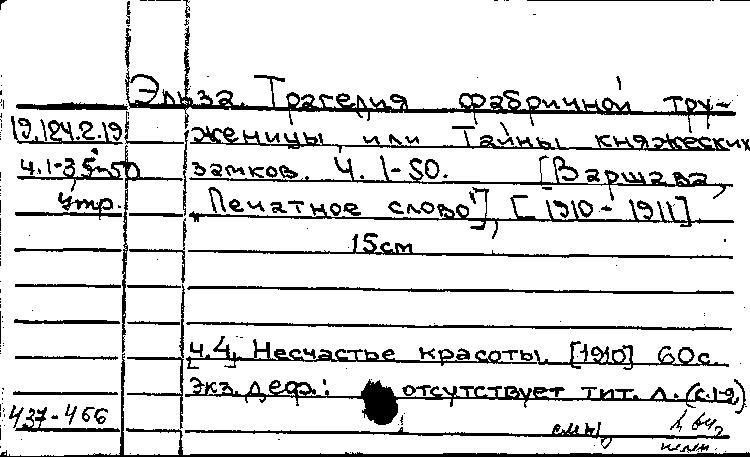 Эльза. Трагедия фабричной тру-
19.124.2.19 женицы, или Тайны княжеских
ч.1-35-50 замков. Ч. 1-50. [Варшава,
Утр. „Печатное слово"], [1910-1911].
15см
ч.4. Несчастье красоты. [1910] 60с.
Экз. деф.: отсутствует тит. л. (с.1-2,
437-466